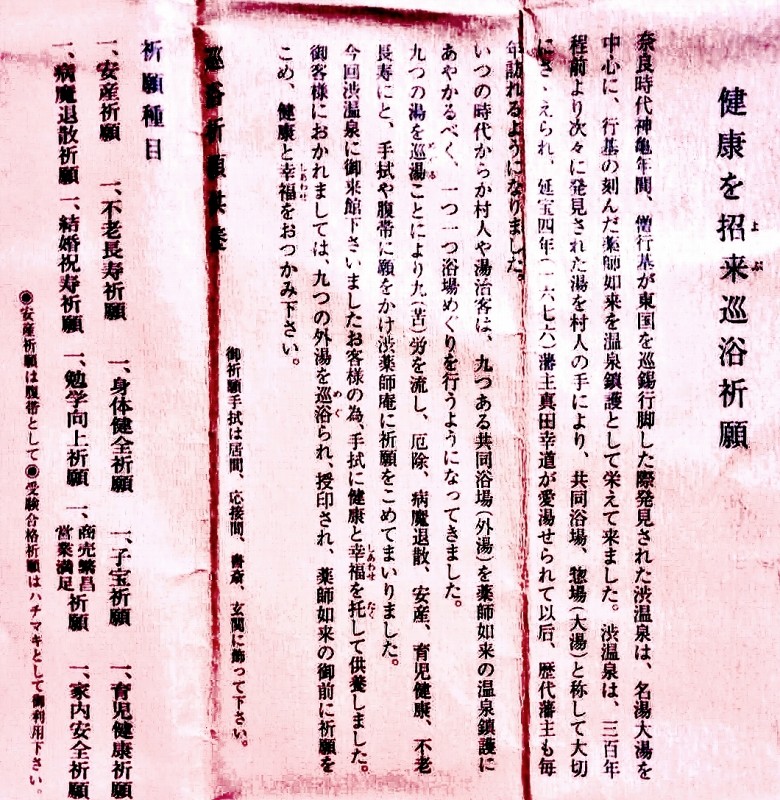 健康を招来巡浴祈願
奈良時代神亀年間、僧行基が東国を巡錫行脚した際発見された渋温泉は、名湯大湯を
中心に、行基の刻んだ薬師如来を温泉鎮護として栄えて来ました。渋温泉は、三百年
程前より次々に発見された湯を村人の手により、共同浴場、惣場(大湯)と称して大切
にさゝえられ、延宝四年(一六七六)藩主真田幸道が愛湯せられて以后、歴代藩主も毎
年訪れるようになりました。
いつの時代からか村人や湯治客は、九つある共同浴場(外湯)を薬師如来の温泉鎮護に
あやかるべく、一つ一つ浴場めぐりを行うようになってきました。
九つの湯を巡湯ことにより九(苦)労を流し、厄除、病魔退散、安産、育児健康、不老
長寿にと、手拭や腹帯に願をかけ渋薬師庵に祈願をこめてまいりました。
今回渋温泉に御来館下さいましたお客様の為、手拭に健康と幸福を托して供養しました。
御客様におかれましては、九つの外湯を巡浴られ、授印され、薬師如来の御前に祈願を
こめ、健康と幸福をおつかみ下さい。
御祈願手拭は居間、応接間、書斎、玄関に飾って下さい。
巡浴祈願供養
祈願種目
一、安産祈願 一、不老長寿祈願 一、身体健全祈願 一、子宝祈願 一、育児健康祈願
一、病魔退散祈願 一、結婚祝寿祈願 一、勉学向上祈願 商売繁昌営業満足祈願 一、家内安全祈願
◉安産祈願は腹帯として◉受験合格祈願はハチマキとして御利用下さい。